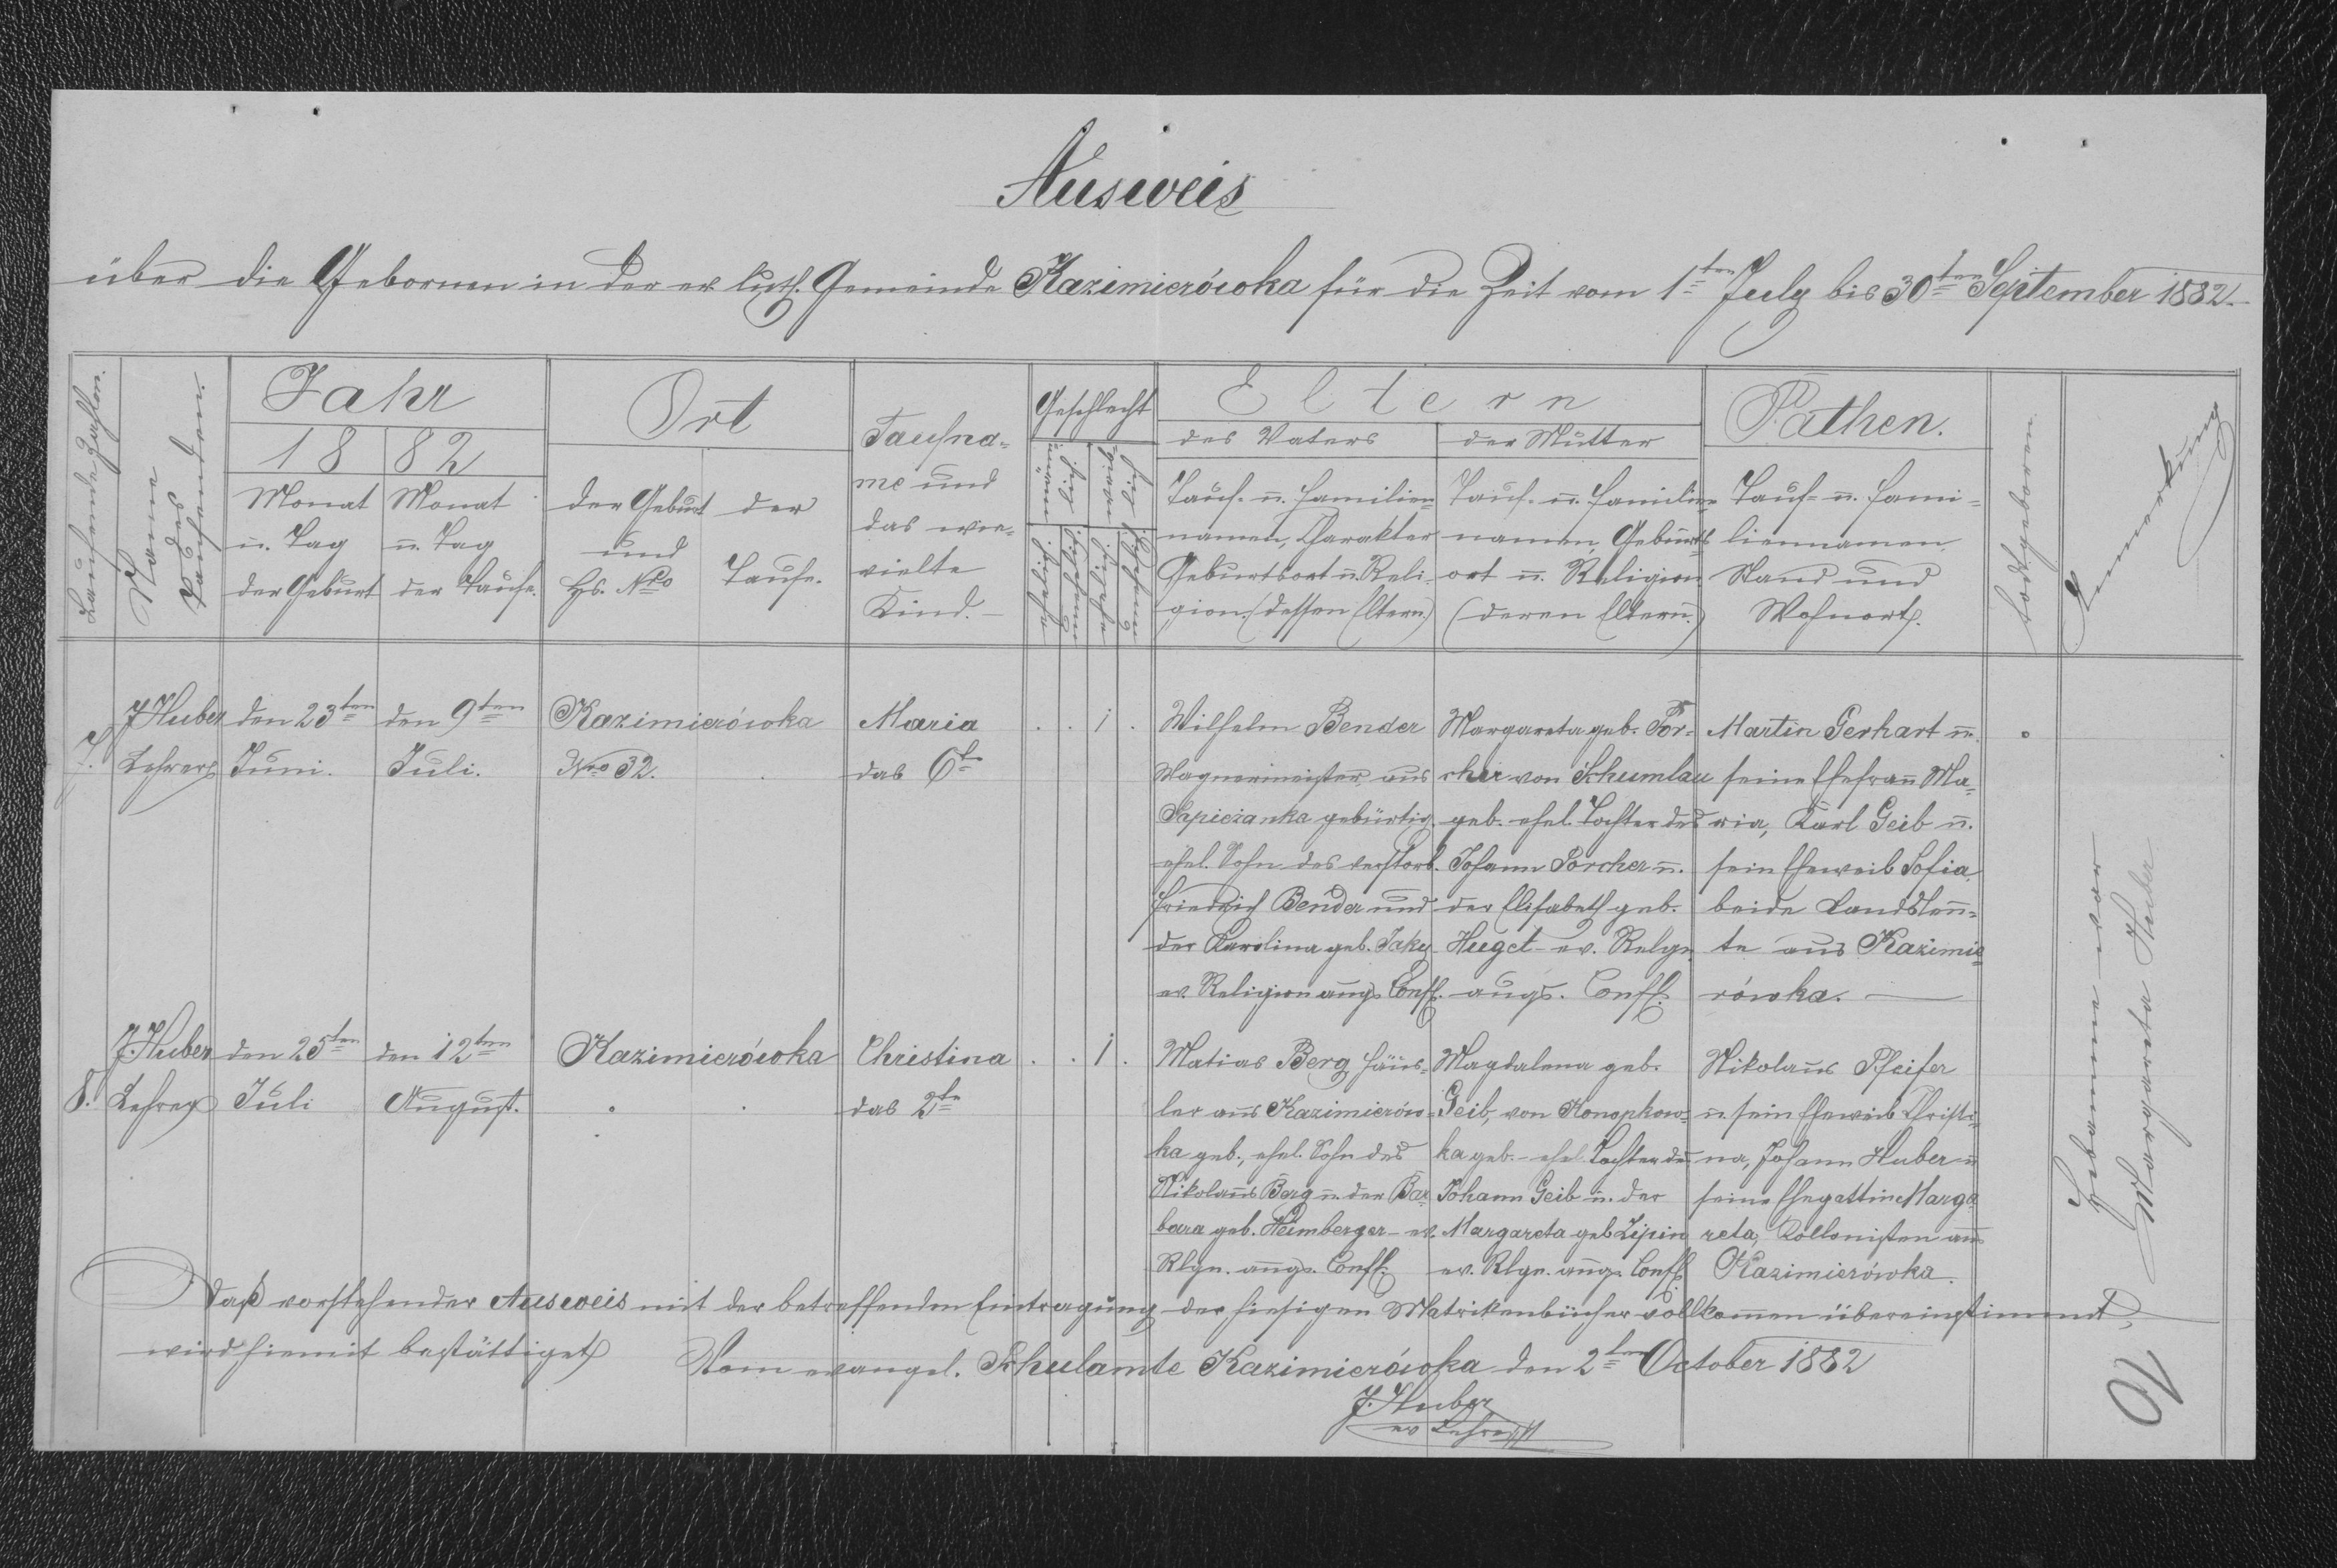 Ausweis
über die Gebornen in der ev. luth. Gemeinde Kazimierówka für die Zeit vom 1ten July bis 30ten September 1882.
Laufende Zahlen.
Name des Taufenden.
Jahr
18 82
Monat u. Tag der Geburt
Monat u. Tag der Taufe.
Ort
der Geburt und Hs. Nro
der Taufe.
Taufna-
me und
das wie-
vielte
Kind.
Geschlecht
Eltern
des Vaters
Tauf- u. Familien-
namen, Charakter
Geburtsort u. Reli-
gion. (dessen Eltern.)
der Mutter
Tauf- u. Familien-
namen, Geburts-
ort u. Religion
(deren Eltern.)
Pathen.
Tauf- u. Fami-
liennamen,
Stand und
Wohnort.
todtgeboren
Anmerkung
7.
J. Huber
Lehrer
den 23ten
Juni.
den 9ten
Juli.
Kazimierówka
Nro 32.
Maria
das 6te
. . 1 .
Wilhelm Bender
Wagnermeister, aus
Sapieżanka gebürtig.
ehel. Sohn des verstorb.
Friedrich Bender und
der Karolina geb. Jaky
ev. Religion augs. Conff.
Margareta geb. Por-
cher von Schumlau
geb. ehel. Tochter des
Johann Porcher u.
der Elisabeth geb.
Huget - ev. Relgn.
augs. Conff.
Martin Gerhart u.
seine Ehefrau Ma-
ria, Karl Geib u.
sein Eheweib Sofia
beide Landsleu-
te aus Kazimie-
rówka.
8.
J. Huber
Lehrer
den 25ten
Juli
den 12ten
August.
Kazimierówka
Christina
das 2te
. . 1 .
Matias Berg Häus-
ler aus Kazimierów-
ka geb., ehel. Sohn des
Nikolaus Berg u. der Bar-
bara geb. Heimberger - ev.
Rlgn. augs. Conff.
Magdalena geb.
Geib, von Konopkow-
ka geb. - ehel. Tochter des
Johann Geib u. der
Margareta geb Lipin
ev. Rlgn. augs. Conff.
Nikolaus Pfeifer
u. sein Eheweib Christi-
na, Johann Huber u
seine Ehegattin Marga-
reta, Kollonisten aus
Kazimierówka.
Hebamme war
Margareta Huber
Daß vorstehender Ausweis mit der betreffenden Eintragung der hiesigen Matrikenbücher vollkommen übereinstimmt,
wird hiemit bestättiget
Vom evangel. Schulamte Kazimierówka den 2ten October 1882
J. Huber
ev Lehrer